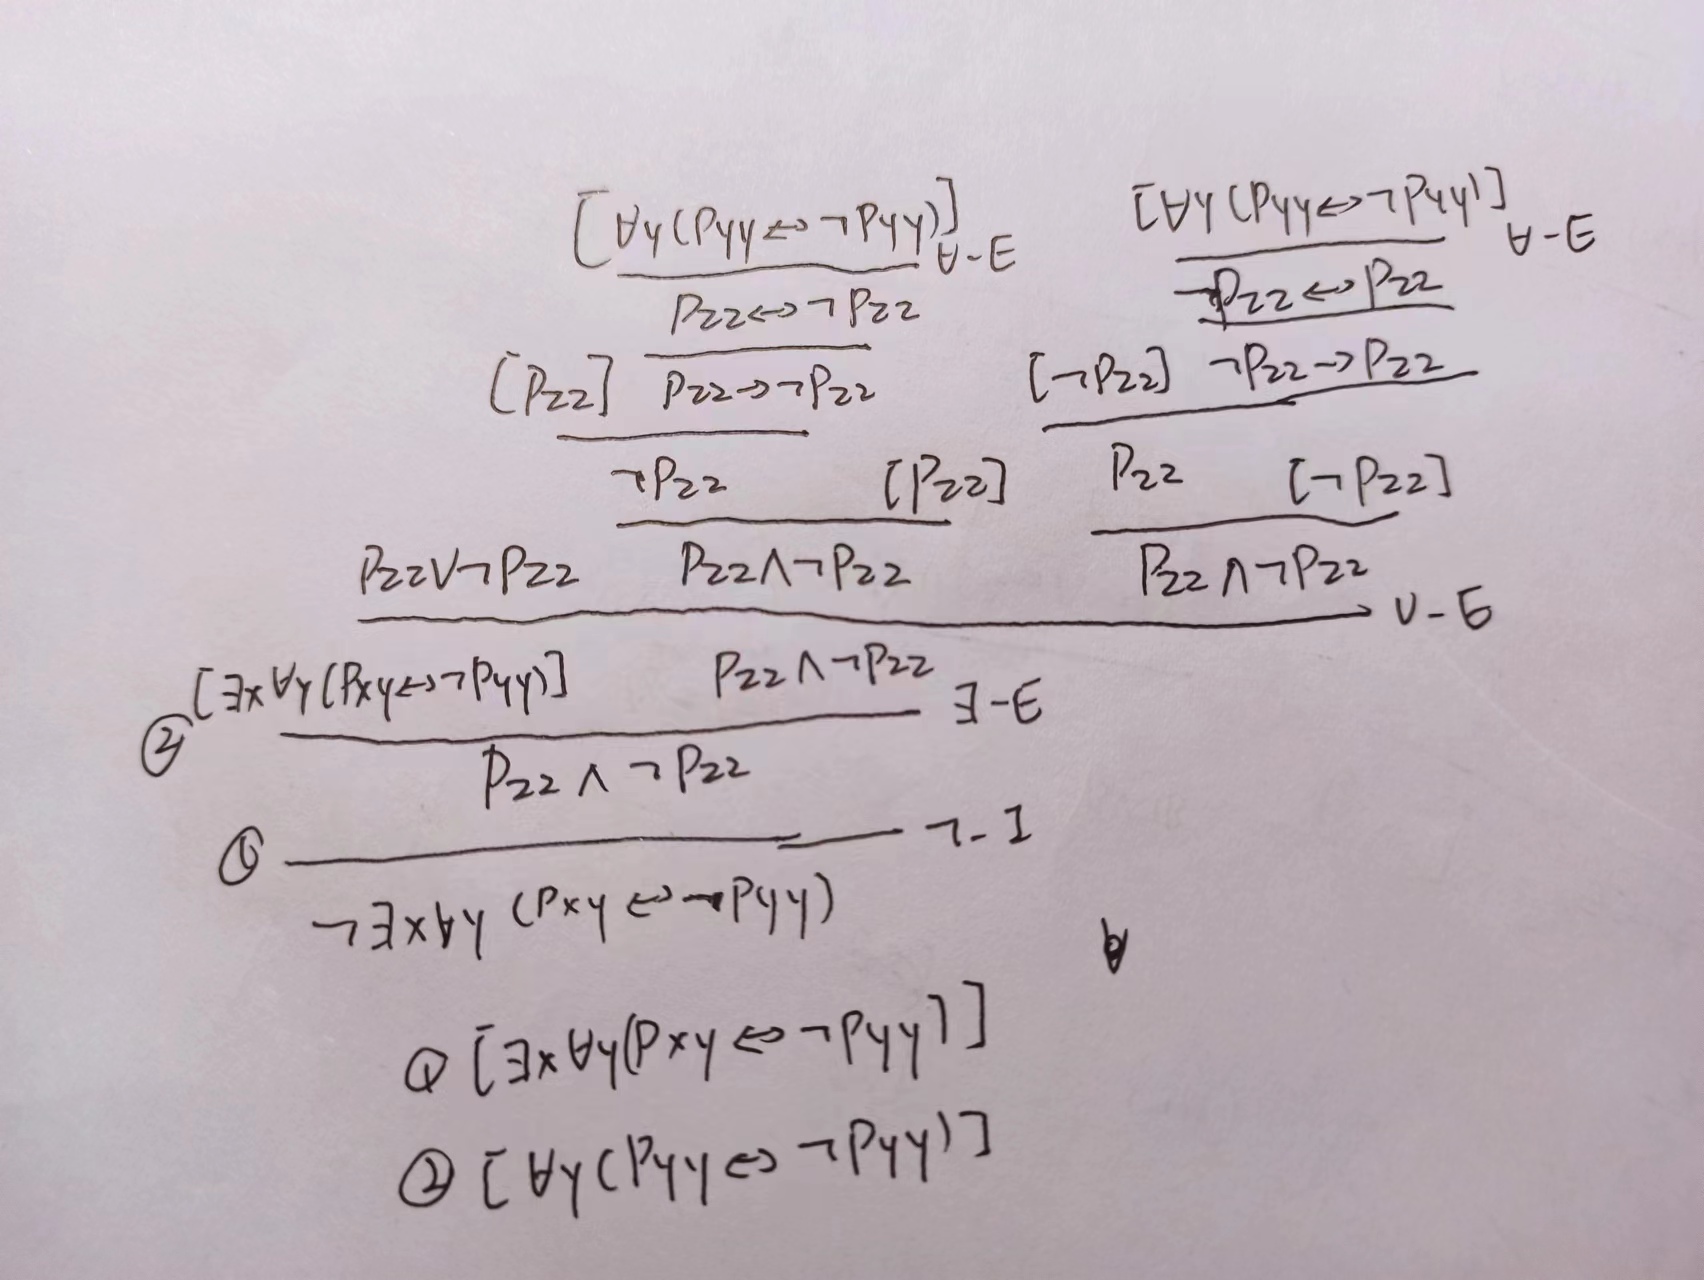 [∀y(Pyy↔¬Pyy)] ∀-E [∀y(Pyy↔¬Pyy)] ∀-E
Pzz↔¬Pzz ¬Pzz↔Pzz
[Pzz] Pzz→¬Pzz [¬Pzz] ¬Pzz→Pzz
¬Pzz [Pzz] Pzz [¬Pzz]
Pzz∨¬Pzz Pzz∧¬Pzz Pzz∧¬Pzz
∨-E
[∃x∀y(Pxy↔¬Pyy)] Pzz∧¬Pzz
② ∃-E
Pzz∧¬Pzz
① ¬-I
¬∃x∀y(Pxy↔¬Pyy)
① [∃x∀y(Pxy↔¬Pyy)]
② [∀y(Pyy↔¬Pyy)]